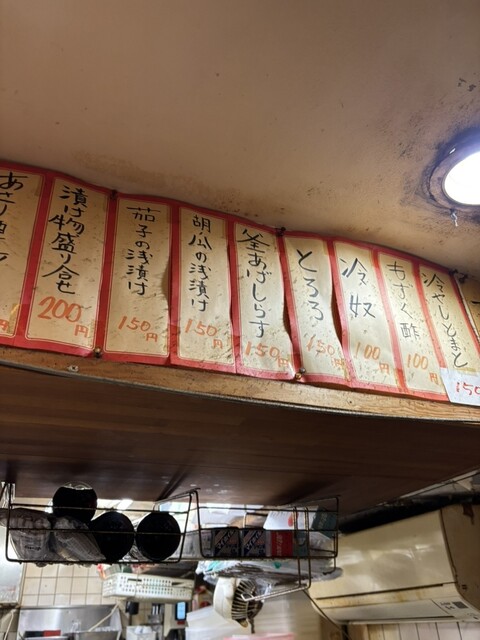 冷やしとまと
150
もずく酢
100円
冷奴
100円
とろろ
150円
釜あげしらす
150円
胡瓜の浅漬け
150円
茄子の浅漬け
150円
漬け物盛り合せ
200円
あさり
円